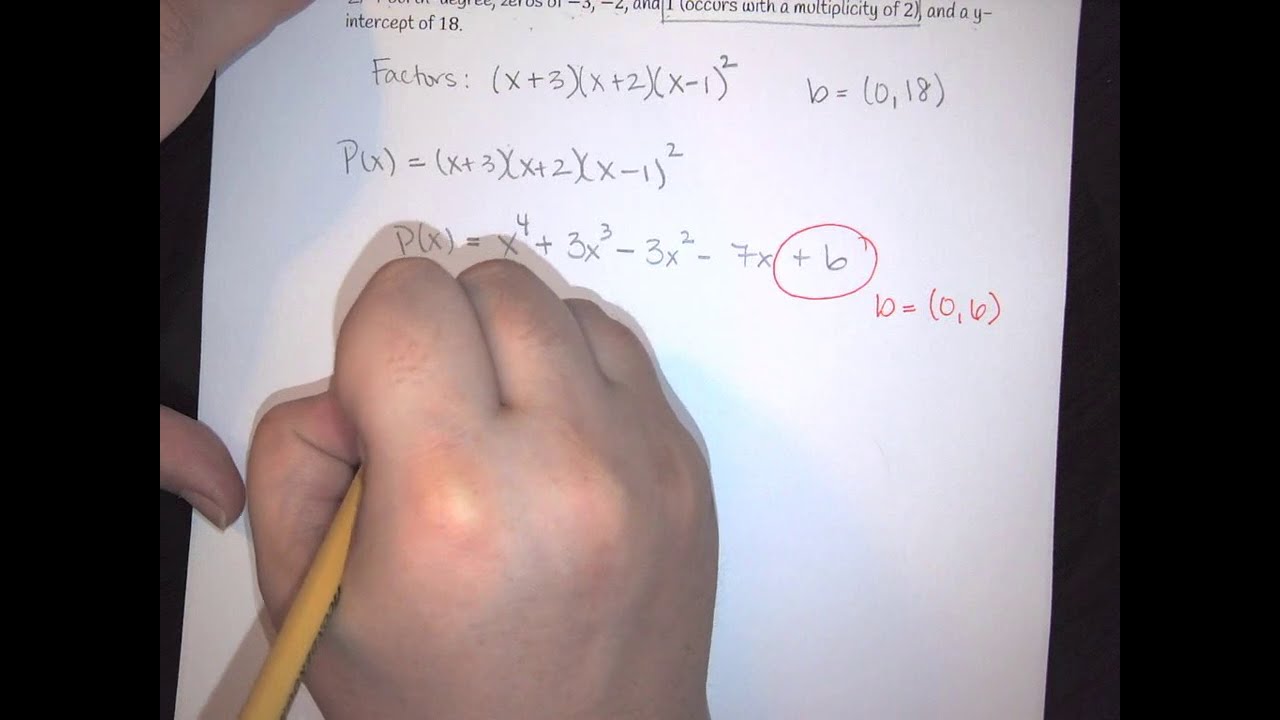 degree, zeros of −3, −2, and 1 (occurs with a multiplicity of 2), and a y-
intercept of 18.
Factors: (x+3)(x+2)(x-1)² b = (0,18)
P(x) = (x+3)(x+2)(x-1)²
P(x) = x⁴ + 3x³ - 3x² - 7x + 6
b = (0,6)